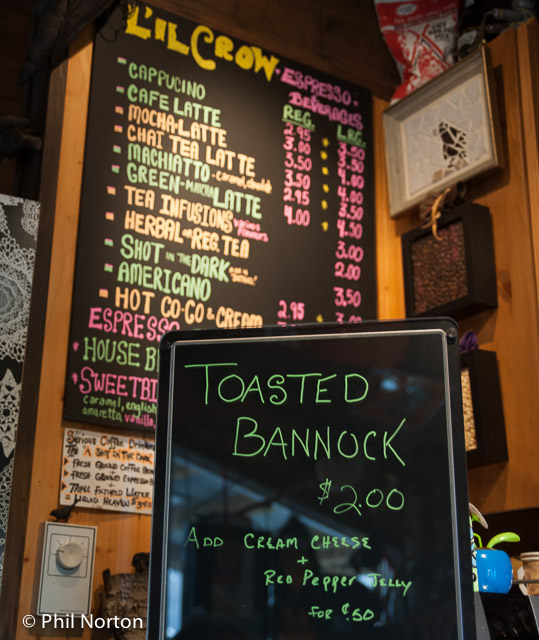 L'il Crow
ESPRESSO
BEVERAGES
REG. LRG.
CAPPUCINO 2.95 3.50
CAFE LATTE 3.00 3.50
MOCHA-LATTE 3.50 4.00
CHAI TEA LATTE 3.50 4.00
MACHIATTO
GREEN-MATCHA LATTE 4.00 4.50
TEA INFUSIONS 3.00
HERBAL OR REG. TEA 2.00
SHOT IN THE DARK
AMERICANO 3.50
HOT CO-CO & CREAM 2.95
ESPRESSO
HOUSE
caramel, english
amaretta, vanilla,
Serious Coffee Drinkers
"A SHOT IN THE DARK
FRESH GROUND COFFEE
FRESH GROUND ESPRESSO
TRIPLE FILTERED WATER
= LIQUID HEAVEN
TOASTED
BANNOCK
$2.00
ADD CREAM CHEESE
+
RED PEPPER JELLY
FOR $.50
© Phil Norton